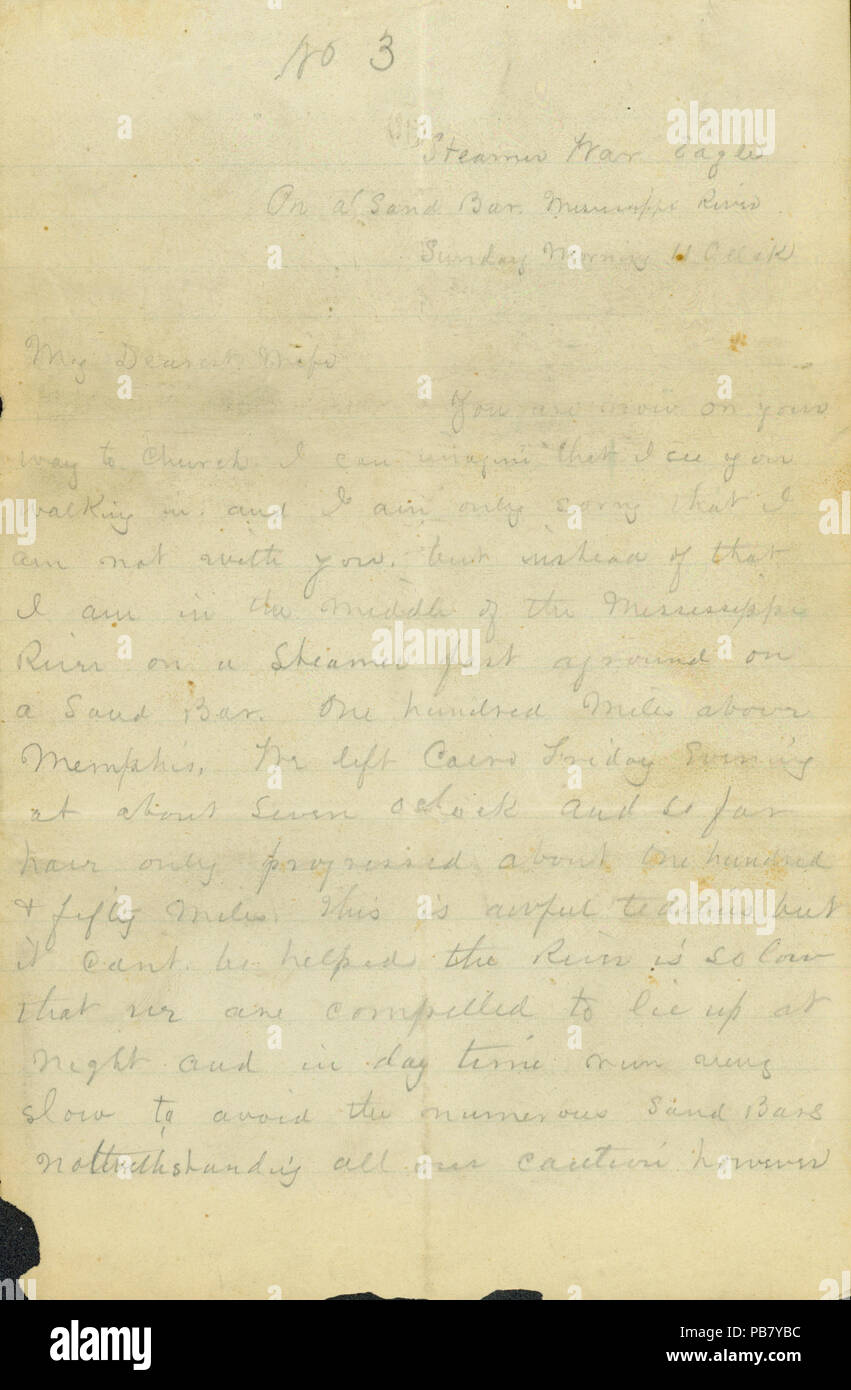 No 3
Steamer War Eagle
On a Sand Bar. Mississippi River
Sunday Morning 11 Oclok
My Dearest Wife
You are now on your
way to Church. I can imagin that I see you
walking in. and I am only sorry that I
am not with you. but instead of that
I am in the Middle of the Mississippi
River on a Steamer fast aground on
a Sand Bar. One hundred Miles above
Memphis. We left Cairo Friday Evening
at about Seven oclock and so far
have only progressed about One hundred
& fifty Miles. This is awful tedious but
it cant be helped the River is so low
that we are compelled to lie up at
night and in day time run very
slow to avoid the numerous Sand Bars
Nottwithstanding all our caution however
alamy
Image ID: PB7YBC
www.alamy.com